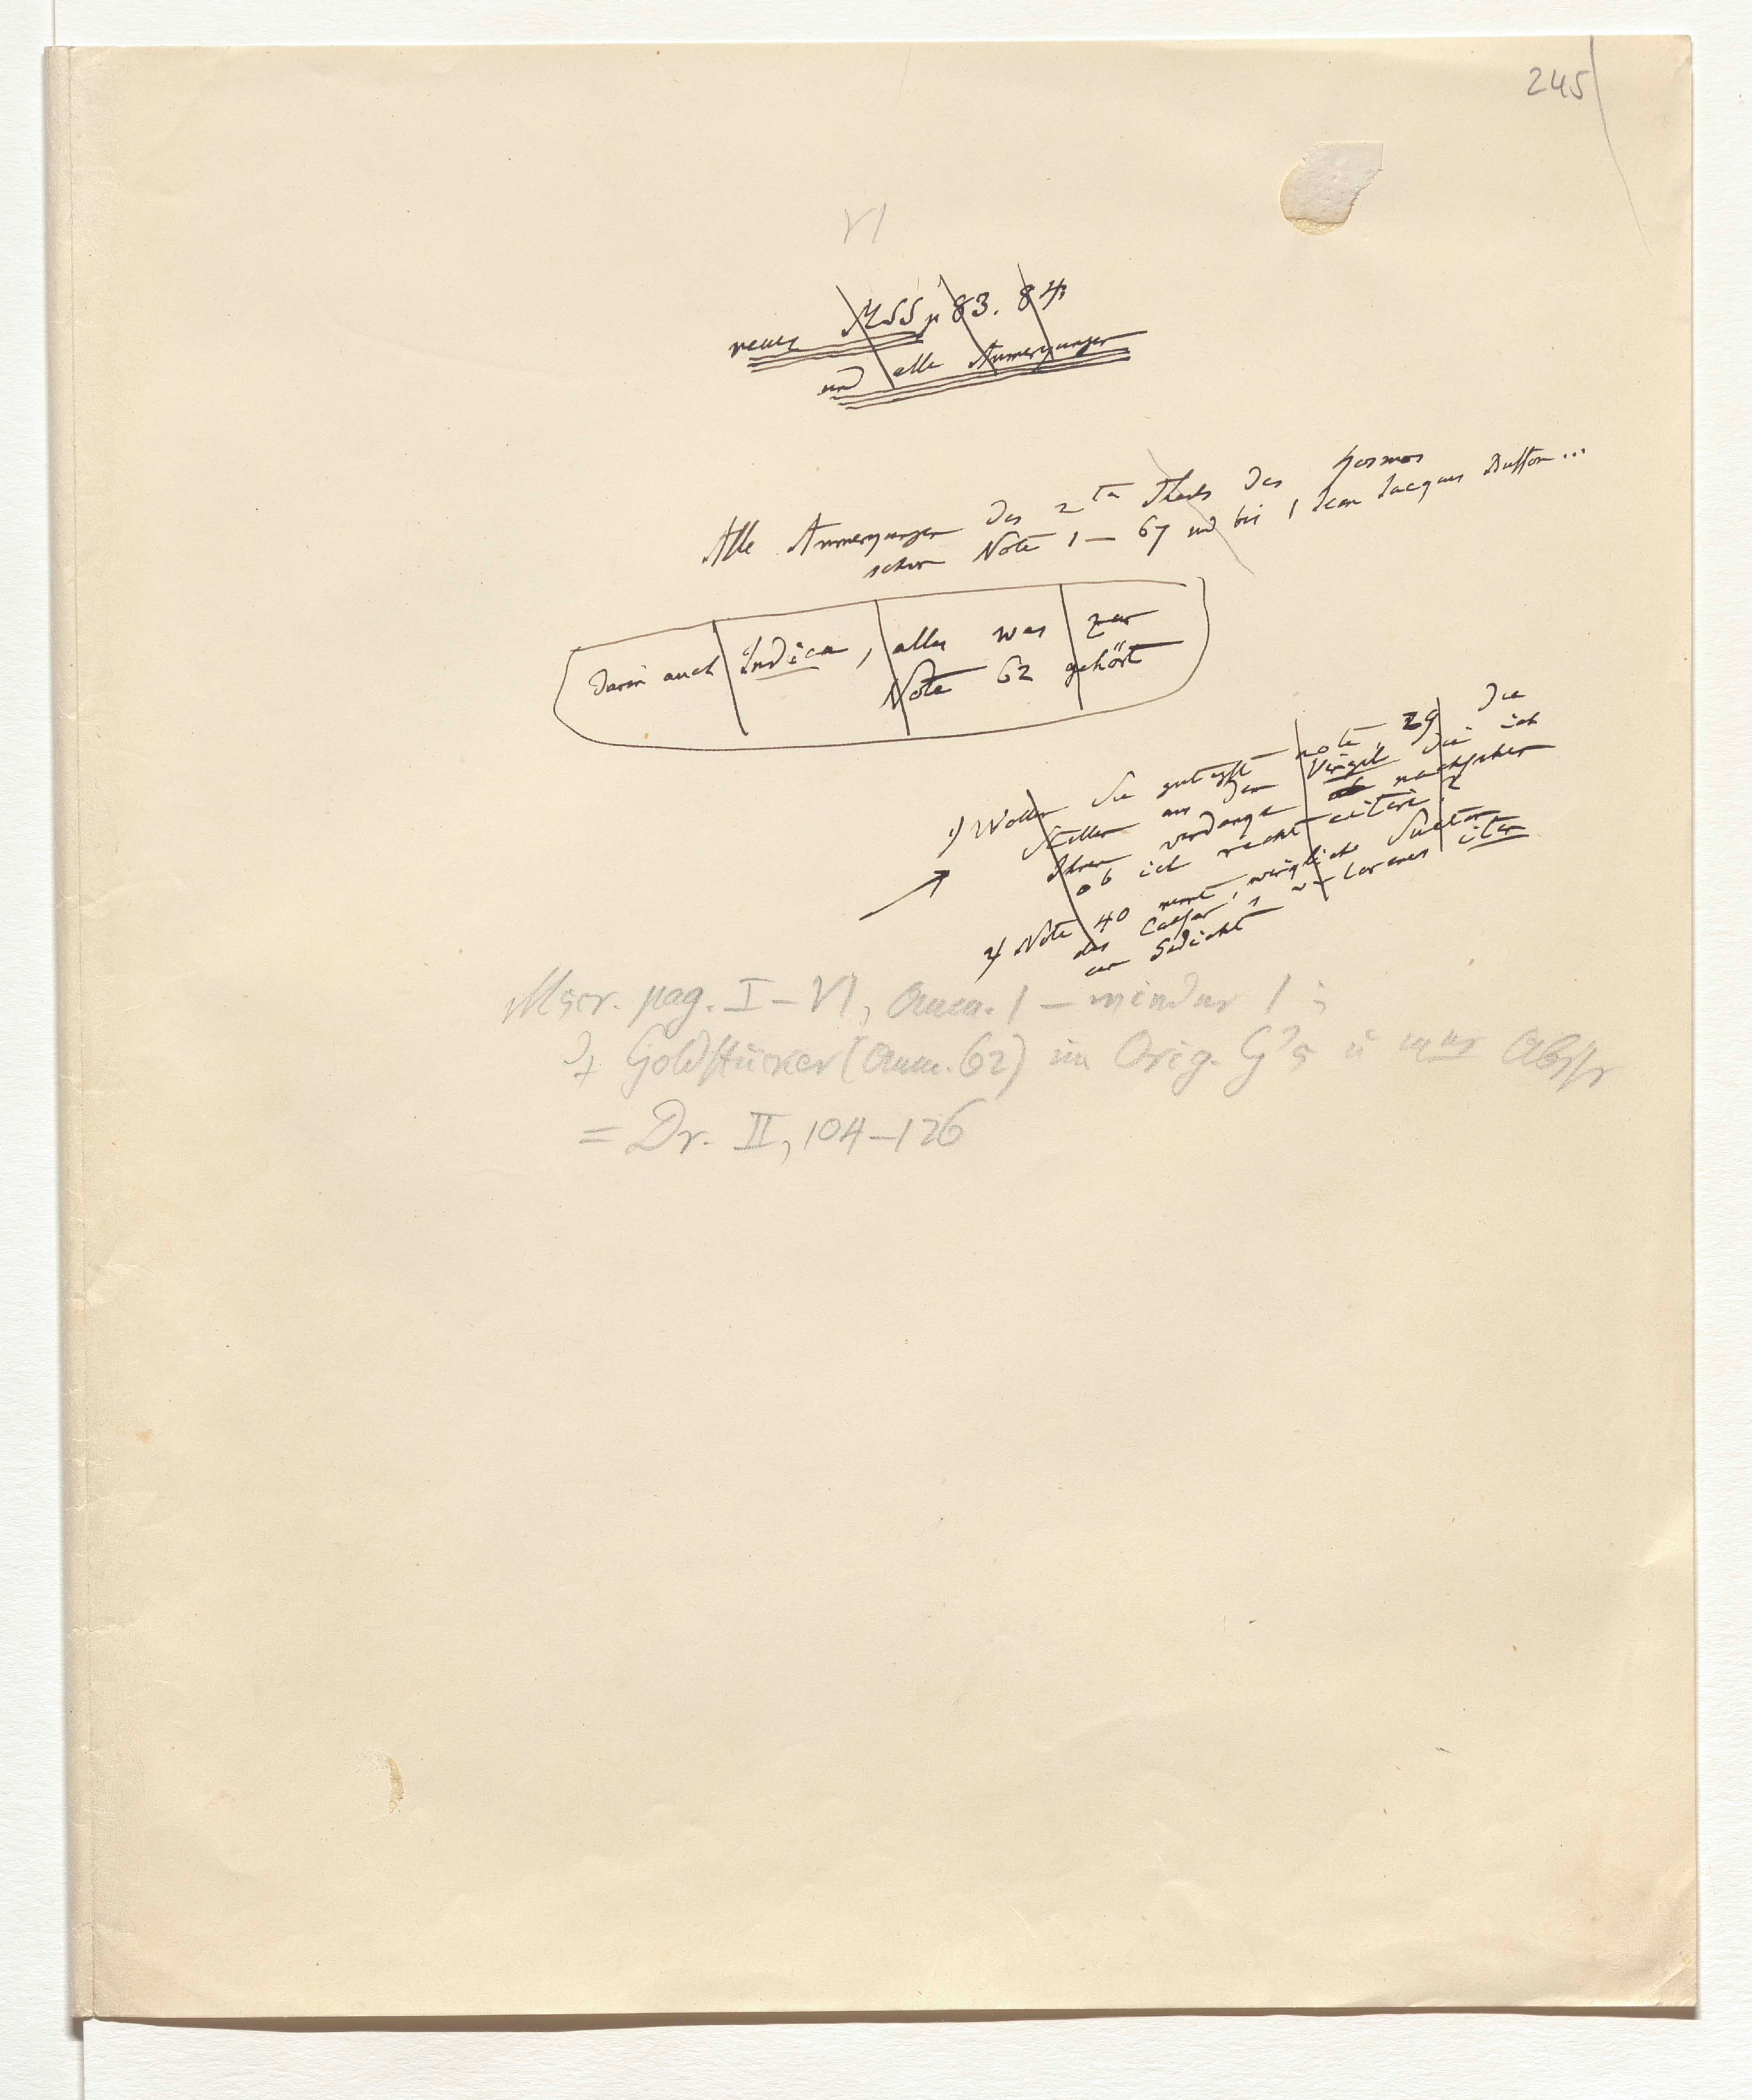 245
VI
neues MSS p 83. 84
und alle Anmerkungen
Alle Anmerkungen des 2ten Theils des Kosmos
schon Note 1 – 67 und bis 1 Jean Jacques Buffon...
Darin auch Indica, alles was zur
Note 62 gehört
1) Wollen Sie gütigst note 29 die
Stellen aus dem Virgil die ich
Ihnen verdanke nachsehen
ob ich recht citire?
2) Note 40 nennt wirklich Sueton
des Caesar's iter
ein Gedicht
Mscr. pag. I – VI, Anm. 1 –
Goldstücker (Anm. 62) im Orig. G's u
= Dr. II, 104–126